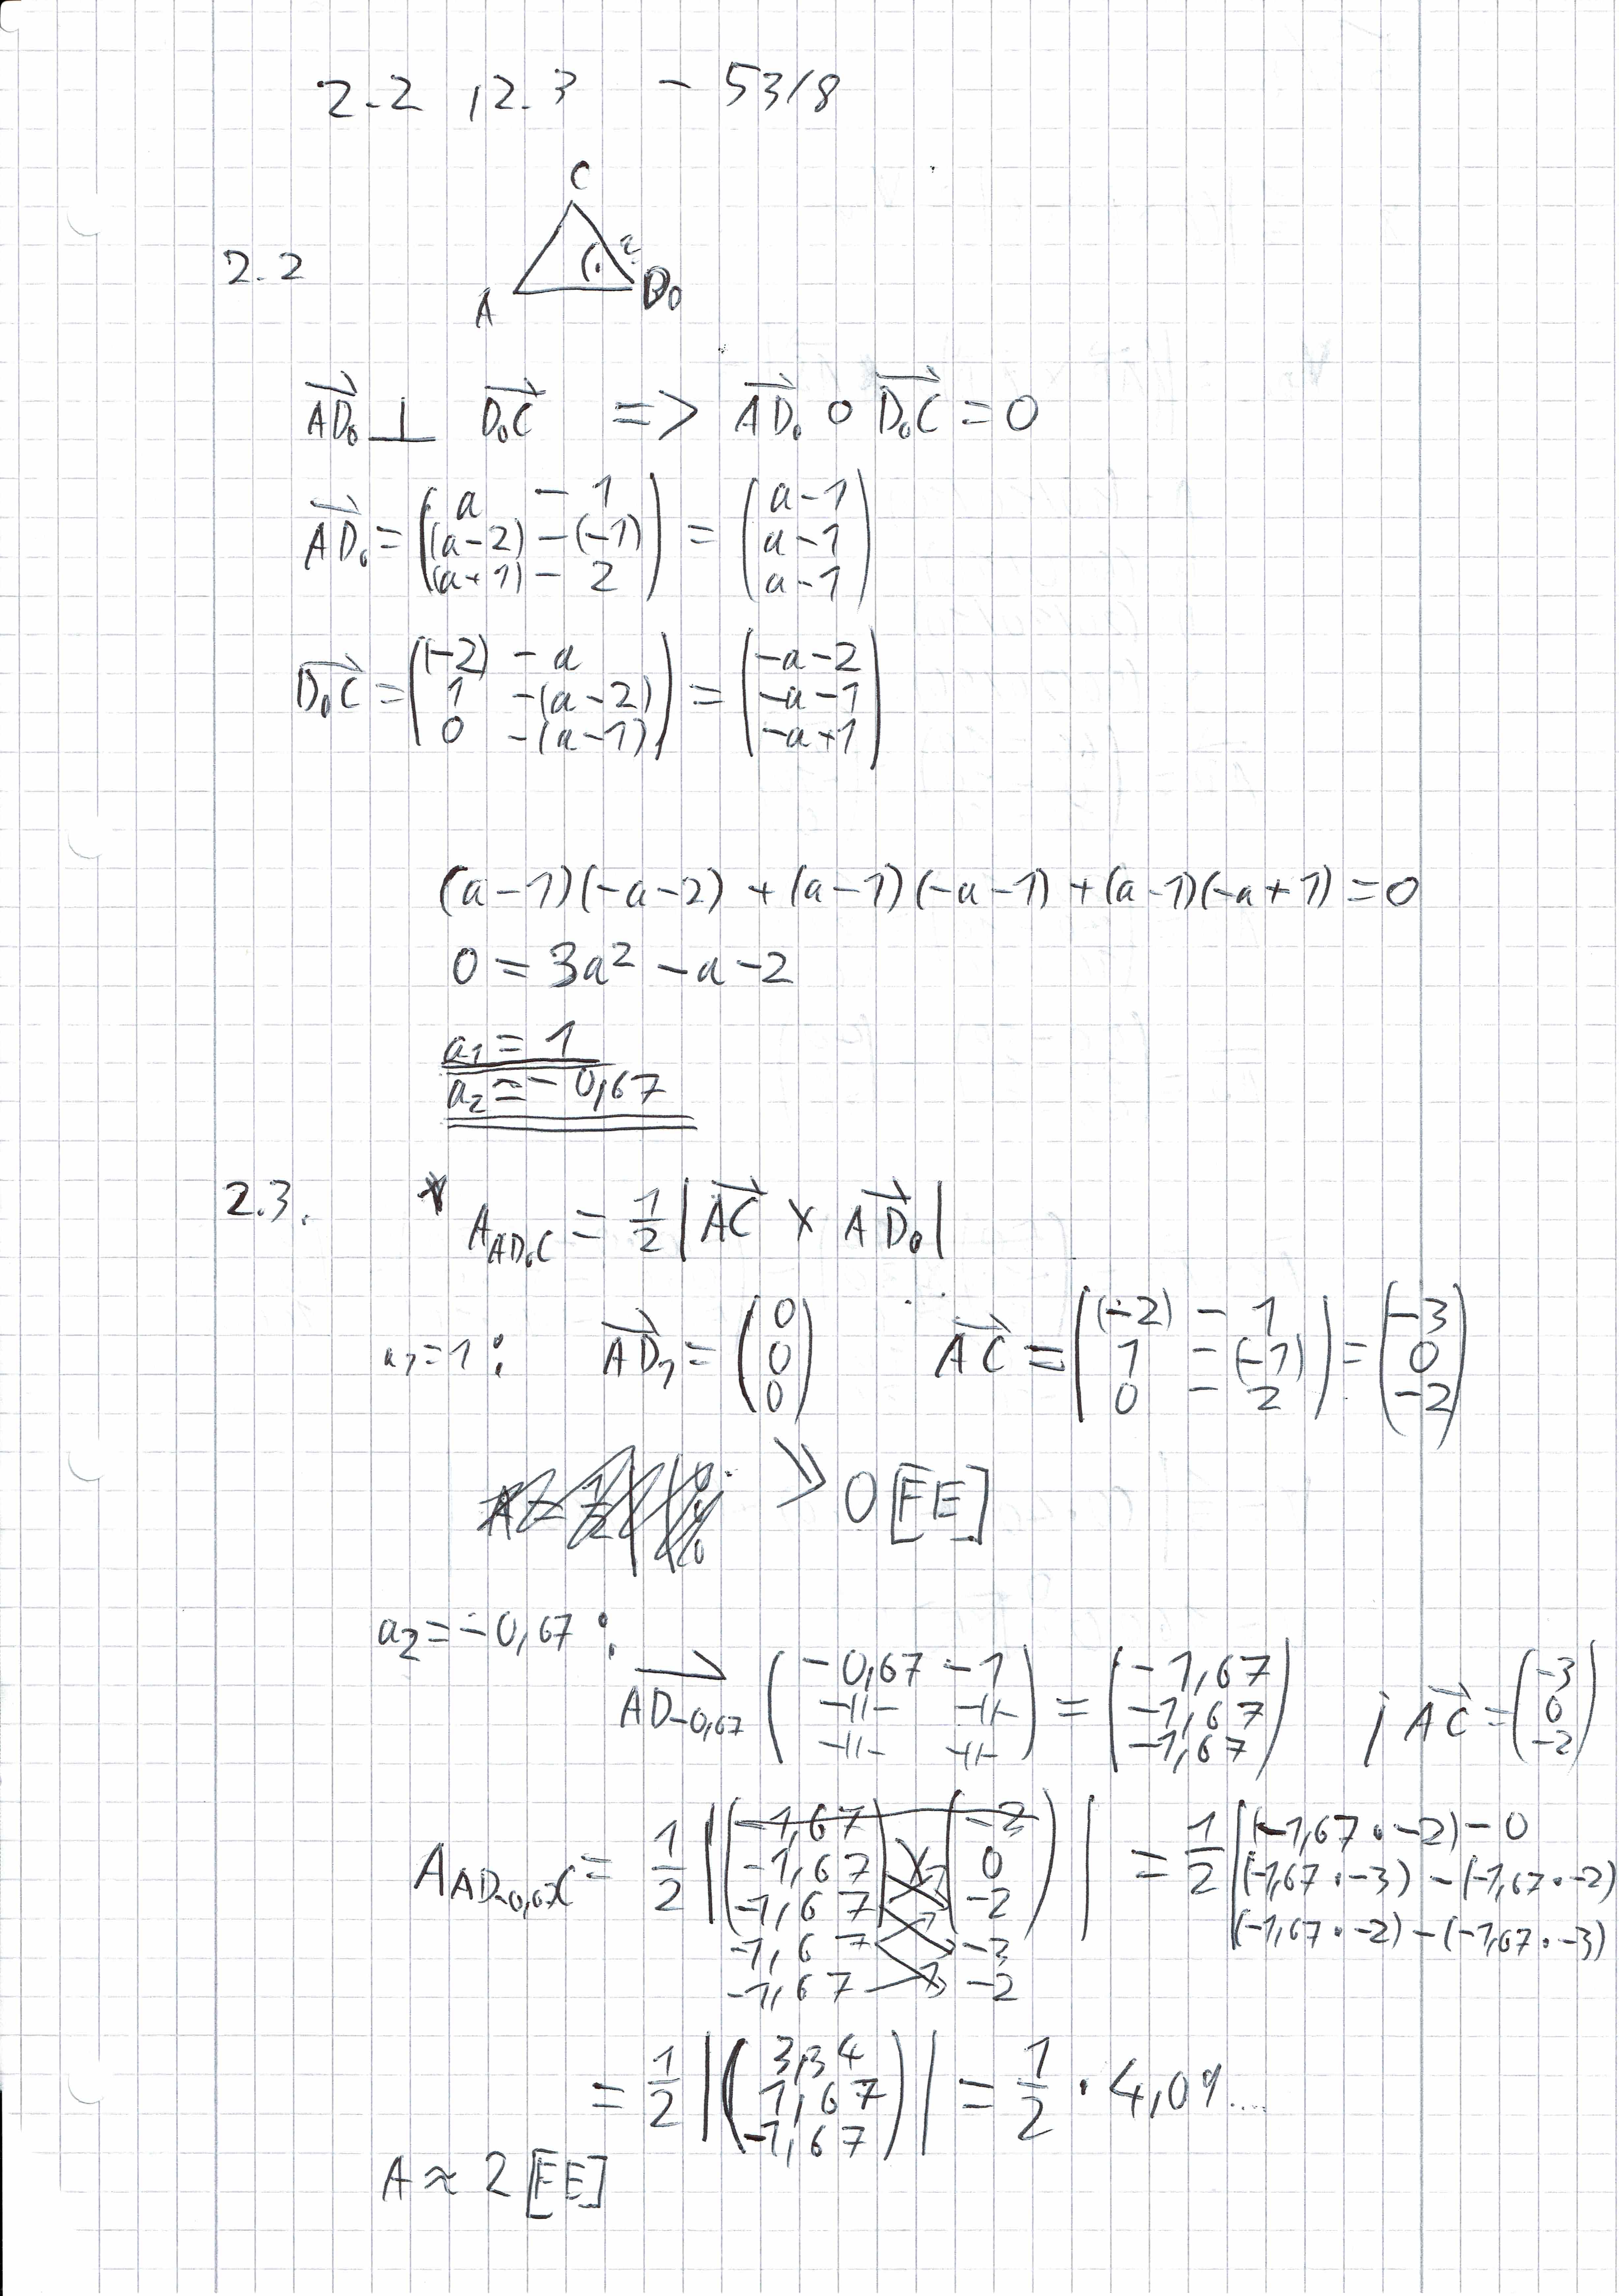 2.2 , 2.3 - 53/8
C
2.2
A D₀
AD₀ ⊥ D₀C => AD₀ ∘ D₀C = 0
AD₀ = ( a - 1 ; (a-2) - (-1) ; (a+1) - 2 ) = ( a-1 ; a-1 ; a-1 )
D₀C = ( (-2) - a ; 1 - (a-2) ; 0 - (a-1) ) = ( -a-2 ; -a-1 ; -a+1 )
(a-1)(-a-2) + (a-1)(-a-1) + (a-1)(-a+1) = 0
0 = 3a² - a - 2
a₁ = 1
a₂ = -0,67
2.3. A_AD₀C = 1/2 | AC × AD₀ |
a₁=1 : AD₁ = ( 0 ; 0 ; 0 ) AC = ( (-2) - 1 ; 1 - (-1) ; 0 - 2 ) = ( -3 ; 0 ; -2 )
0 [FE]
a₂ = -0,67 :
AD-0,67 ( -0,67 - 1 ; -||- -||- ; -||- -||- ) = ( -1,67 ; -1,67 ; -1,67 ) ; AC = ( -3 ; 0 ; -2 )
A_AD-0,67C = 1/2 | ( -1,67 ; -1,67 ; -1,67 ) × ( -3 ; 0 ; -2 ) | = 1/2 | (-1,67 · -2) - 0 ; (-1,67 · -3) - (-1,67 · -2) ; (-1,67 · -2) - (-1,67 · -3)
-1,67 -3
-1,67 -2
= 1/2 | ( 3,34 ; 1,67 ; -1,67 ) | = 1/2 · 4,09...
A ≈ 2 [FE]